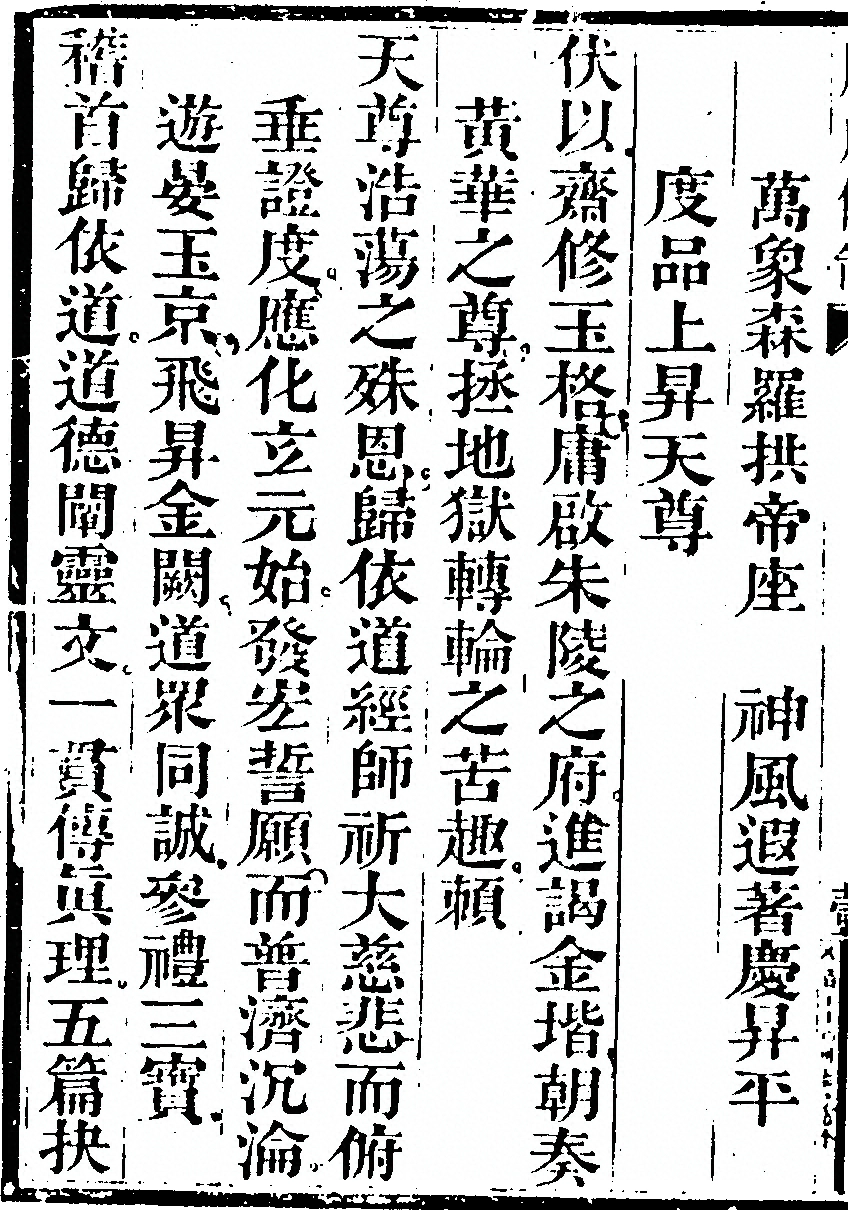 萬象森羅拱帝座　神風遐著慶昇平
度品上昇天尊
伏以齋修玉格庸啟朱陵之府進謁金堦朝奏
黃華之尊拯地獄轉輪之苦趣賴
天尊浩蕩之殊恩歸依道經師祈大慈悲而俯
垂證度應化立元始發宏誓願而普濟沉淪
遊晏玉京飛昇金闕道眾同誠參禮三寶
稽首歸依道道德闡靈文一貫傳眞理五篇抉